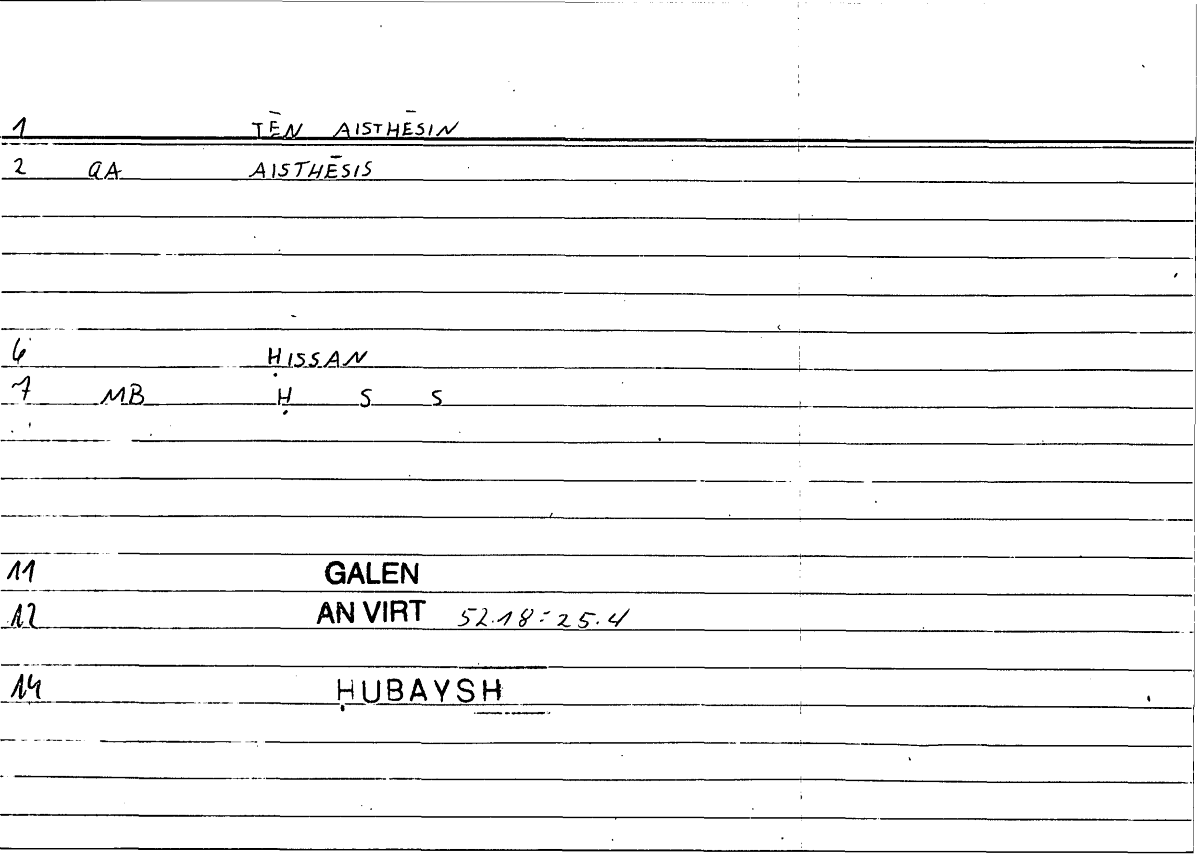 1 TĒN AISTHĒSIN
2 QA AISTHĒSIS
6 ḤISSAN
7 MB Ḥ S S
11 GALEN
12 AN VIRT 52.18 = 25.4
14 ḤUBAYSH